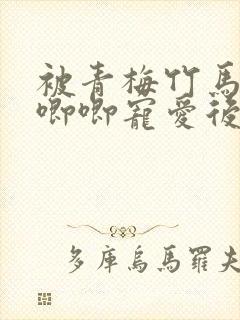 被青梅竹馬
唧唧寵愛後
多庫烏馬羅夫